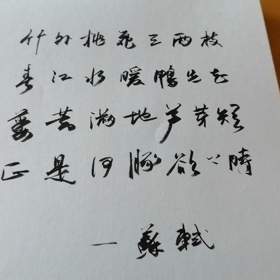 竹外桃花三两枝
春江水暖鸭先知
蒌蒿满地芦芽短
正是河豚欲上时
—蘇軾